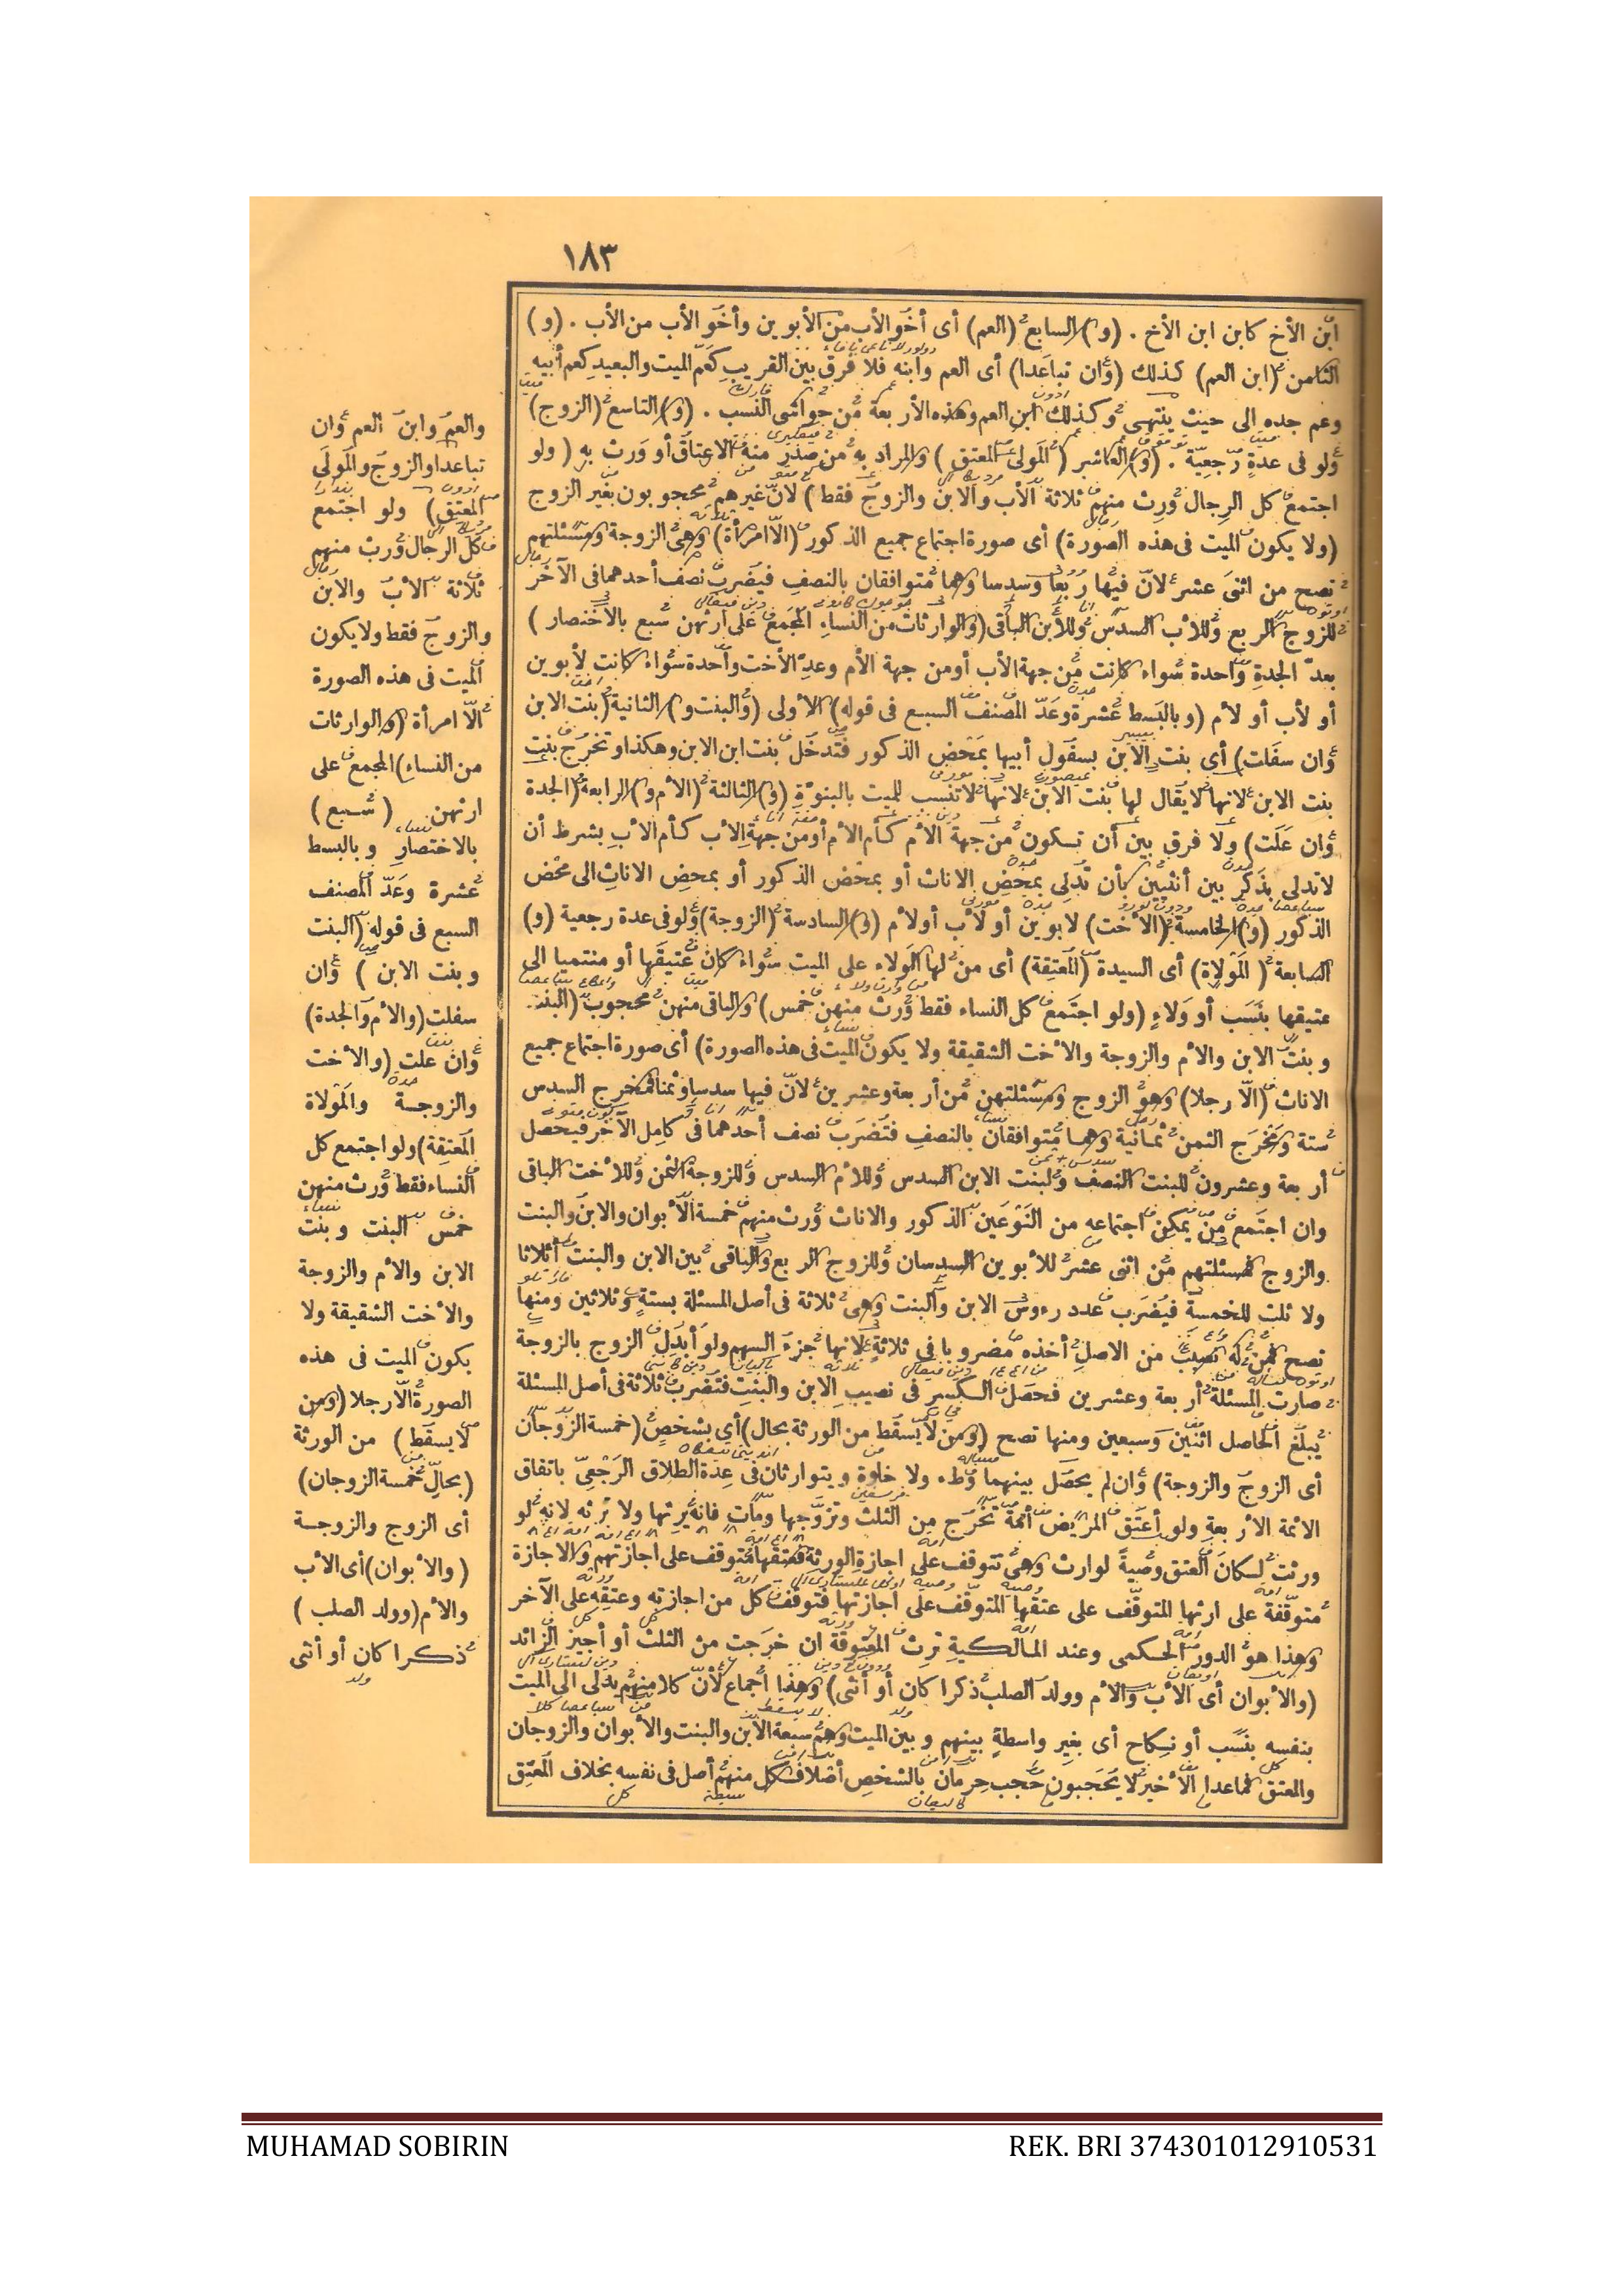 ١٨٣
ابن الأخ كابن ابن الأخ . (و) السابع (العم) أى أخو الأب من الأبوين وأخو الأب من الأب . (و)
الثامن (ابن العم) كذلك (وان تباعدا) أى العم وابنه فلا فرق بين القريب كعم الميت والبعيد كعم أبيه
وعم جده الى حيث ينتهى وكذلك ابن العم وهذه الأربعة من حواشى النسب . (و) التاسع (الزوج)
ولو فى عدة رجعية . (و) العاشر (المولى المعتق) والمراد به من صدر منه الاعتاق أو ورث به (ولو
اجتمع كل الرجال ورث منهم ثلاثة الأب والابن والزوج فقط) لان غيرهم محجوبون بغير الزوج
(ولا يكون الميت فى هذه الصورة) أى صورة اجتماع جميع الذكور (الا امرأة) وهى الزوجة ومسئلتهم
تصح من اثنى عشر لان فيها ربعا وسدسا وهما متوافقان بالنصف فيضرب نصف أحدهما فى الآخر
للزوج الربع وللأب السدس وللأبن الباقى (والوارثات من النساء المجمع على ارثهن سبع بالاختصار)
بعد الجدة واحدة سواء كانت من جهة الأب أو من جهة الأم وعد الأخت واحدة سواء كانت لأبوين
أو لأب أو لأم (وبالبسط عشرة وعد المصنف السبع فى قوله) الأولى (والبنت و) الثانية (بنت الابن
وان سفلت) أى بنت الابن بسفول أبيها بمحض الذكور فتدخل بنت ابن الابن وهكذا وتخرج بنت
بنت الابن لانها لا يقال لها بنت الابن لانها لا تنسب للميت بالبنوة (و) الثالثة (الأم و) الرابعة (الجدة
وان علت) ولا فرق بين أن تكون من جهة الأم كأم الأم أو من جهة الأب كأم الأب بشرط أن
لا تدلى بذكر بين أنثيين بأن تدلى بمحض الاناث أو بمحض الذكور أو بمحض الاناث الى محض
الذكور (و) الخامسة (الأخت) لابوين أو لأب أو لأم (و) السادسة (الزوجة) ولو فى عدة رجعية (و)
السابعة (المولاة) أى السيدة (المعتقة) أى من لها الولاء على الميت سواء كان عتيقها أو منتميا الى
عتيقها بنسب أو ولاء (ولو اجتمع كل النساء فقط ورث منهن خمس) والباقى منهن محجوب (البنت
وبنت الابن والأم والزوجة والأخت الشقيقة ولا يكون الميت فى هذه الصورة) أى صورة اجتماع جميع
الاناث (الا رجلا) وهو الزوج ومسئلتهن من أربعة وعشرين لان فيها سدسا وثمنا فمخرج السدس
ستة ومخرج الثمن ثمانية وهما متوافقان بالنصف فتضرب نصف أحدهما فى كامل الآخر فيحصل
أربعة وعشرون للبنت النصف ولبنت الابن السدس وللأم السدس وللزوجة الثمن وللأخت الباقى
وان اجتمع من يمكن اجتماعه من النوعين الذكور والاناث ورث منهم خمسة الأبوان والابن والبنت
والزوج فمسئلتهم من اثنى عشر للأبوين السدسان وللزوج الربع والباقى بين الابن والبنت أثلاثا
ولا ثلث للخمسة فيضرب عدد رءوس الابن والبنت وهى ثلاثة فى أصل المسئلة بستة وثلاثين ومنها
تصح فمن له نصيب من الاصل أخذه مضروبا فى ثلاثة لانها جزء السهم ولو أبدل الزوج بالزوجة
صارت المسئلة أربعة وعشرين فحصل الكسر فى نصيب الابن والبنت فتضرب ثلاثة فى أصل المسئلة
يبلغ الحاصل اثنين وسبعين ومنها تصح (ومن لا يسقط من الورثة بحال) أى بشخص (خمسة الزوجان
أى الزوج والزوجة) وان لم يحصل بينهما وطء ولا خلوة ويتوارثان فى عدة الطلاق الرجعى باتفاق
الائمة الأربعة ولو أعتق المريض أمة تخرج من الثلث وتزوجها ومات فانه يرثها ولا ترثه لانه لو
ورثت لكان العتق وصية لوارث وهى تتوقف على اجازة الورثة فعتقها متوقف على اجازتهم والاجازة
متوقفة على ارثها المتوقف على عتقها المتوقف على اجازتها فتوقف كل من اجازته وعتقه على الآخر
وهذا هو الدور الحكمى وعند المالكية ترث المعتوقة ان خرجت من الثلث أو أجيز الزائد
(والأبوان أى الأب والأم وولد الصلب ذكرا كان أو أنثى) وهذا اجماع لأن كلا منهم يدلى الى الميت
بنفسه بنسب أو نكاح أى بغير واسطة بينهم وبين الميت وهم سبعة الابن والبنت والأبوان والزوجان
والمعتق فما عدا الأخير لا يحجبون حجب حرمان بالشخص أصلا فكل منهم أصل فى نفسه بخلاف المعتق
والعم وابن العم وان
تباعدا والزوج والمولى
المعتق) ولو اجتمع
كل الرجال ورث منهم
ثلاثة الأب والابن
والزوج فقط ولا يكون
الميت فى هذه الصورة
الا امرأة (والوارثات
من النساء) المجمع على
ارثهن (سبع)
بالاختصار وبالبسط
عشرة وعد المصنف
السبع فى قوله (البنت
وبنت الابن) وان
سفلت (والأم والجدة)
وان علت (والأخت
والزوجة والمولاة
المعتقة) ولو اجتمع كل
النساء فقط ورث منهن
خمس البنت وبنت
الابن والأم والزوجة
والأخت الشقيقة ولا
يكون الميت فى هذه
الصورة الا رجلا (ومن
لا يسقط) من الورثة
(بحال خمسة الزوجان)
أى الزوج والزوجة
(والأبوان) أى الأب
والأم (وولد الصلب)
ذكرا كان أو أنثى
MUHAMAD SOBIRIN REK. BRI 374301012910531